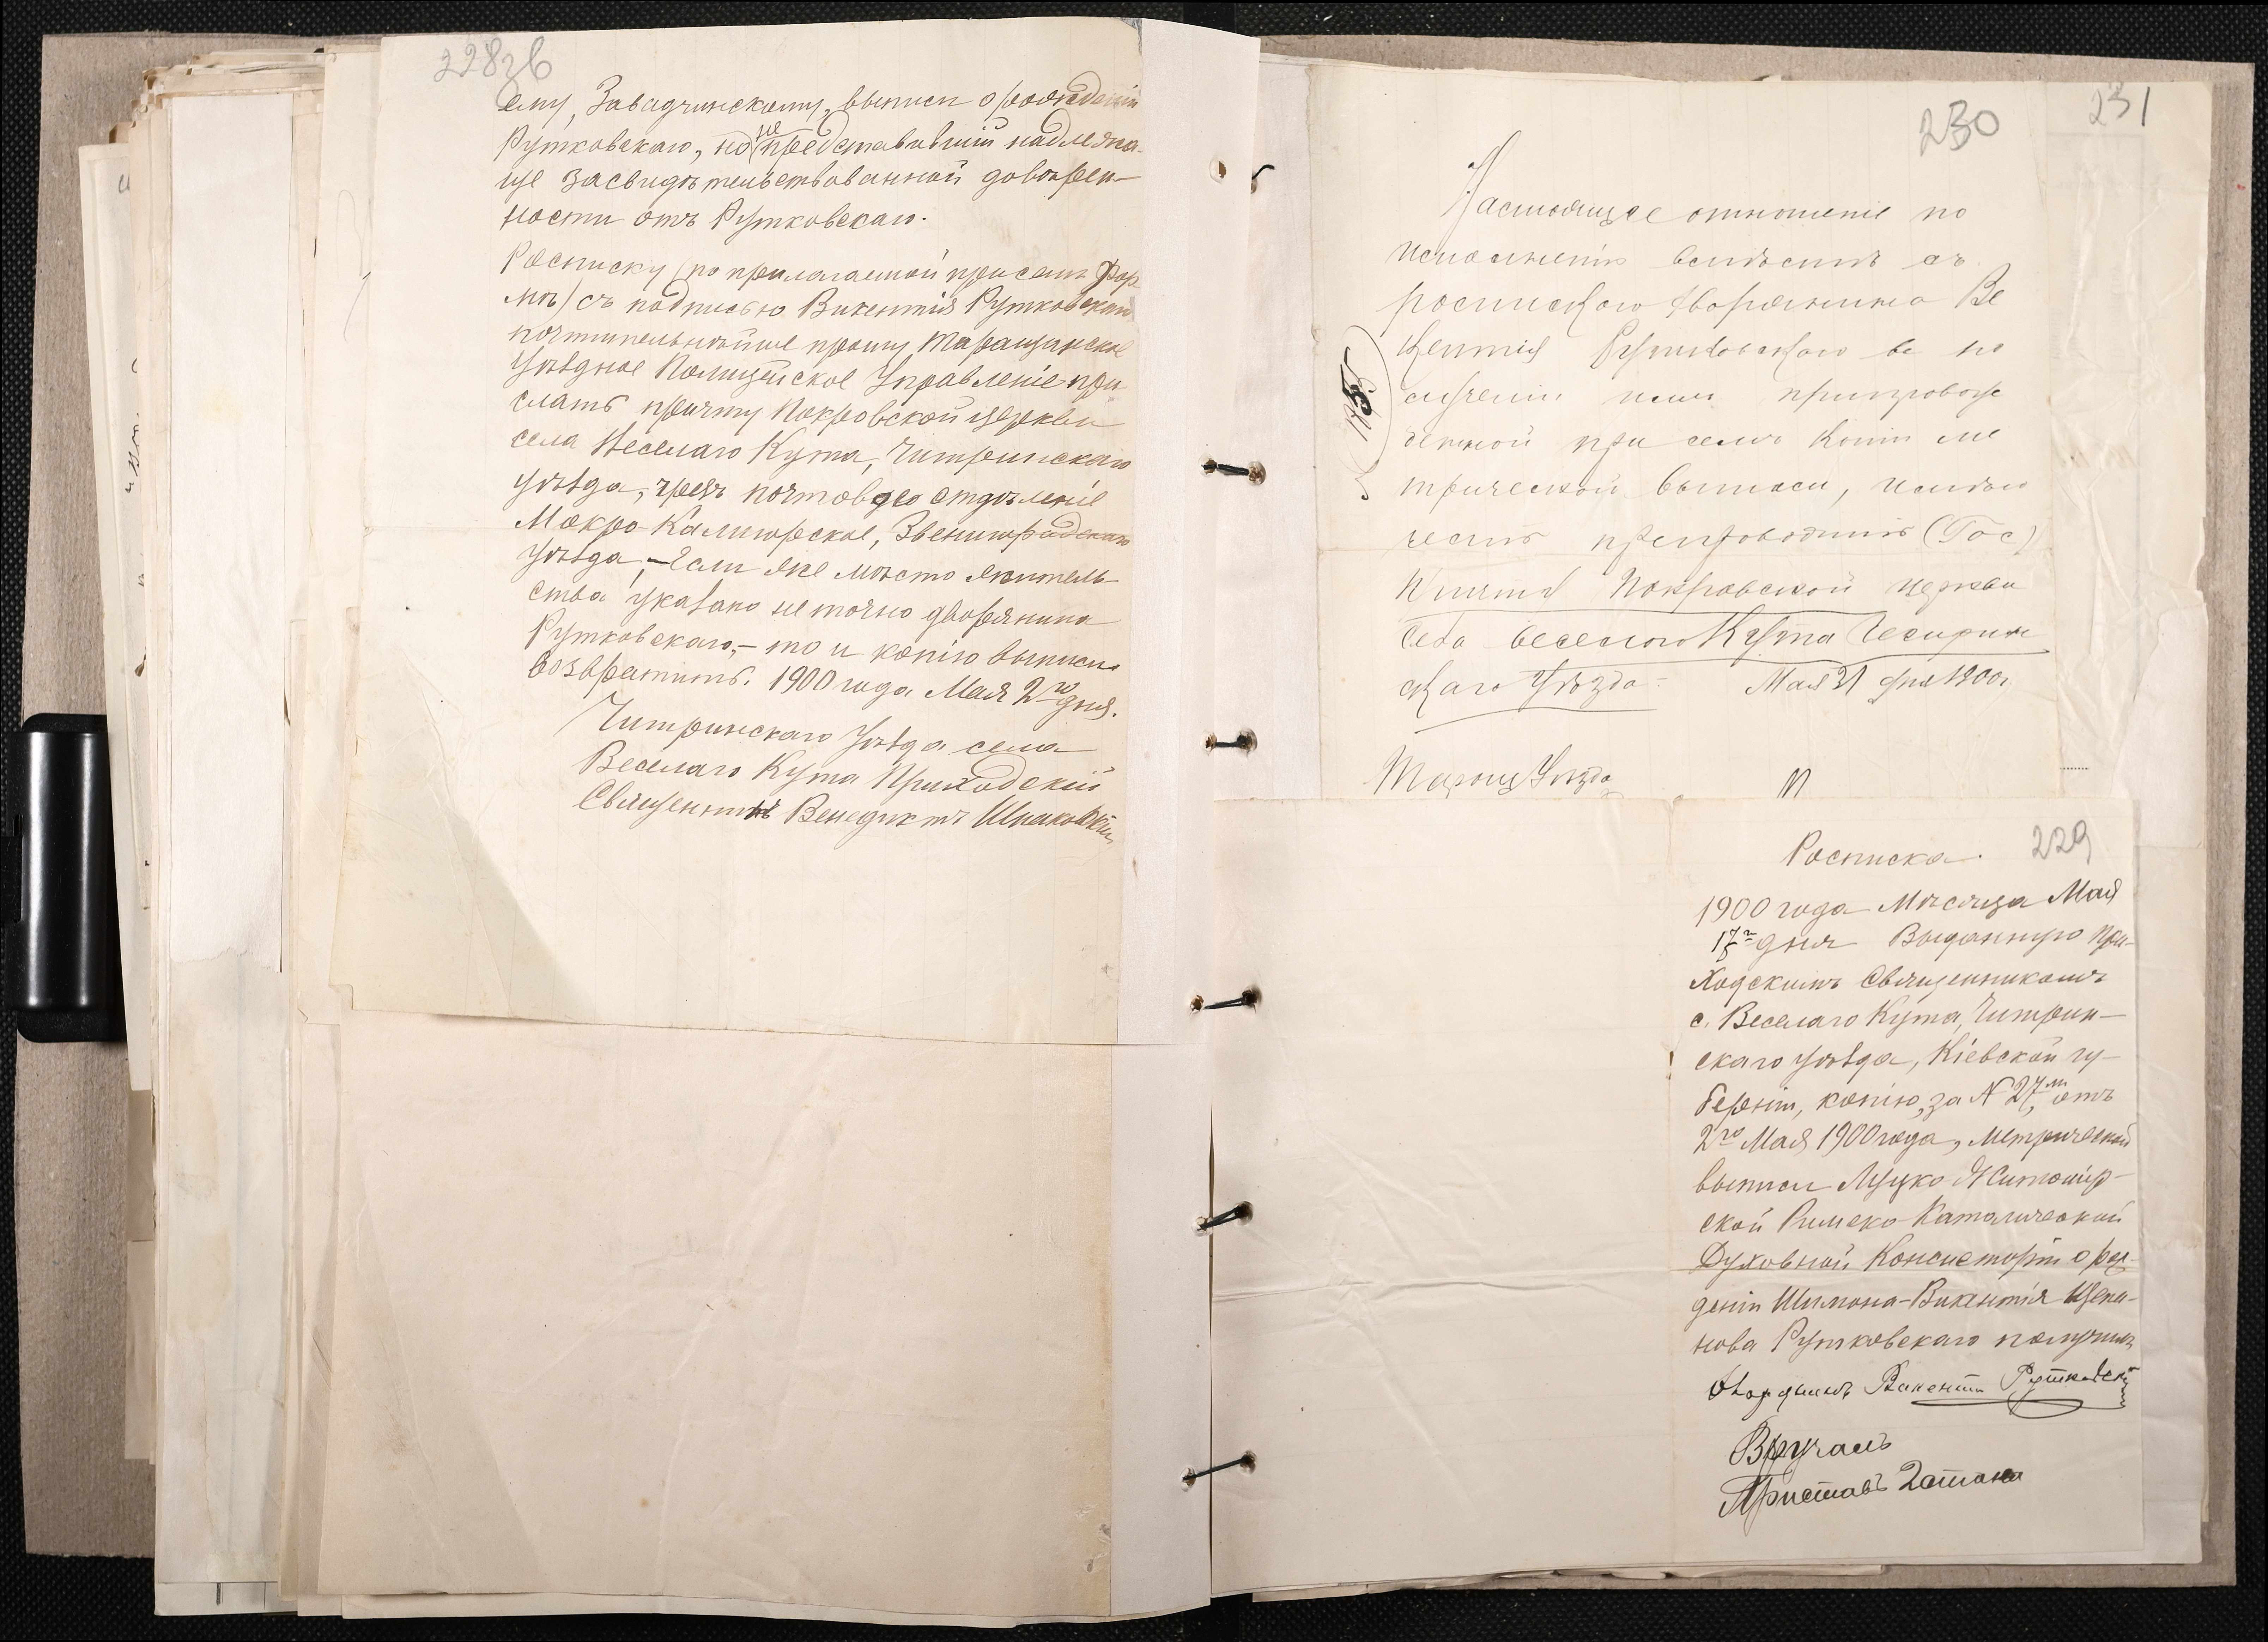 228зв
ему, Завадчинскому, выписи о рождении
Рутковскаго, но не представившiй надлежа-
ще засвидѣтельствованной довѣрен-
ности отъ Рутковскаго.
Росписку (по прилагаемой при семъ фор
мѣ) съ подписью Викентiя Рутковскаго
почтительнѣйше прошу Таращанское
Уѣздное Полицейское Управленiе при
слать причту Покровской церкви
села Веселаго Кута, Чигринскаго
уѣзда, чрезъ почтовое отдѣленiе
Мокро-Калигорское, Звенигородскаго
уѣзда, - Если же мѣсто житель-
ства указано не точно дворянина
Рутковскаго, - то и копiю выписи
возвратить. 1900 года Мая 2го дня.
Чигринскаго Уѣзда села
Веселаго Кута Приходскiй
Священникъ Венедиктъ Шпаковскiй
230
231
Настоящее отношенiе по
исполненiю вмѣстѣ съ
роспиской дворянина Ви
кентiя Рутковскаго въ по
лученiи имъ препровож
денной при семъ копiи ме
трической выписи,
препроводить (Гос)
Причту Покровской церкви
села Веселого Кута Чигирин
скаго Уѣзда. Мая 31 дня 1900 г.
Таращ Уѣзда
229
Росписка.
1900 года Мѣсяца Мая
17го дня Выданную при-
ходскимъ Священникомъ
с. Веселаго Кута, Чигрин-
скаго уѣзда, Кiевской гу-
бернiи, копiю, за № 27мъ, отъ
2го Мая 1900 года, метрической
выписи Луцко Житомiр-
ской Римско-Католической
Духовной Консисторiи о рож-
денiи Шимона-Викентiя
Рутковскаго получилъ
дворянинъ Викентiй Рутковскiй
Вручалъ
Приставъ 2 стана